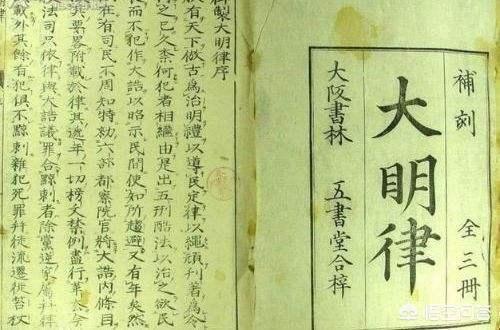 補刻 全三冊
大明律
大阪書林 五書堂合梓
御製大明律序
有天下倣古為治明禮以導民定律以繩頑刊著為令
之已久奈何犯者相繼由是出五刑酷法以治之欲民
而不犯作大誥以昭示民間使知所趨避又有年矣然
在有司民不周知特勅六部都察院官將大誥內條目
其要畧附載於律其逓年一切榜文禁例盡行革去今
法司只依律與大誥議罪合黥刺者除黨逆家属幷律
載外其餘有犯俱不黥刺雜犯死罪幷徒流遷徙笞杖
悟空问答